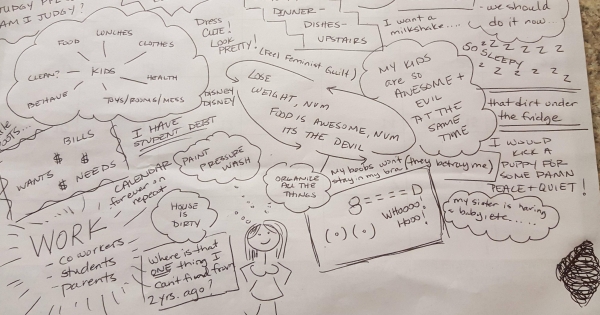 JUDGY
AM I JUDGY?
DRESS
CUTE!
LOOK
PRETTY!
(Feel Feminist Guilt)
DINNER-
DISHES-
UPSTAIRS
I want a
milkshake....
- we should
do it now...
SO SLEEPY
z z z z z z
z z z z z z
LUNCHES
FOOD
CLOTHES
CLEAN?
KIDS
HEALTH
BEHAVE
TOYS/ROOMS/MESS
DISNEY
DISNEY
LOSE
WEIGHT, NUM
FOOD IS AWESOME, NUM
ITS THE DEVIL
MY KIDS
are so
AWESOME +
EVIL
AT THE
SAME
TIME
that dirt under
the fridge
I WOULD
KICK A
PUPPY FOR
SOME DAMN
PEACE + QUIET!
BILLS
$ $
$
WANTS
NEEDS
I HAVE
STUDENT DEBT
CALENDAR
forever on
repeat
PAINT
PRESSURE
WASH
ORGANIZE
ALL THE
THINGS
My boobs won't (they betray me)
stay in my bra!
8====D
WHOOOO!
HOO!
(o)(o)
my sister is having
a baby, etc.....
HOUSE
IS
DIRTY
WORK
co workers
students
parents
Where is that
ONE thing I
can't find from
2 yrs. ago?